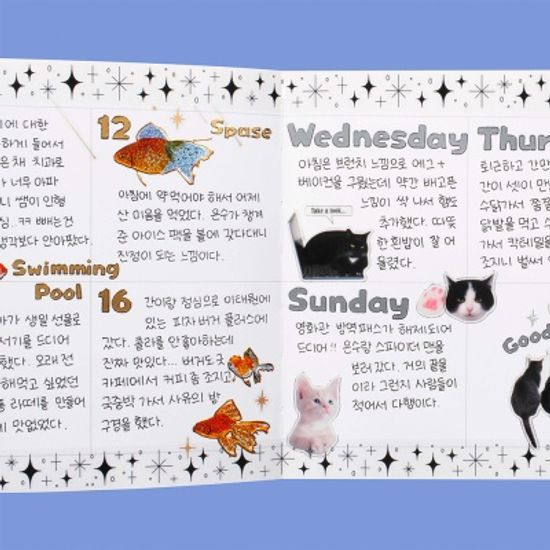 에 대한
하게 들어서
은 채 치과로
가 너무 아파
니 쌤이 인형
심..ㅋㅋ 빼는건
생각보다 안아팠다.
12
Spase
아침에 약 먹어야 해서 어제
산 이음을 먹었다. 은수가 챙겨
준 아이스 팩을 볼에 갖다대니
진정이 되는 느낌이다.
Swimming
Pool
마가 생일 선물로
서기를 드디어
했다. 오래 전
해먹고 싶었던
라떼를 만들어
맛없었다.
16
간이랑 점심으로 이태원에
있는 피자 버거 플러스에
갔다. 콜라를 안좋아하는데
진짜 맛있다... 버거도 굿
카페에서 커피 좀 조지고
국중박 가서 사유의 방
구경을 했다.
Wednesday
아침은 브런치 느낌으로 에그 +
베이컨을 구웠는데 약간 배고픈
느낌이 싹 나서 햄도
추가했다. 따뜻
한 흰밥이 잘 어
울렸다.
Take a look...
Thur
퇴근하고 간만
간이 셋이 만
수닭가서 꿀
닭발을 먹고
가서 칵테일을
조지니 벌써
Sunday
영화관 방역패스가 해제되어
드디어!! 은수랑 스파이더 맨을
보러 갔다. 거의 끝물
이라 그런지 사람들이
적어서 다행이다.
Good